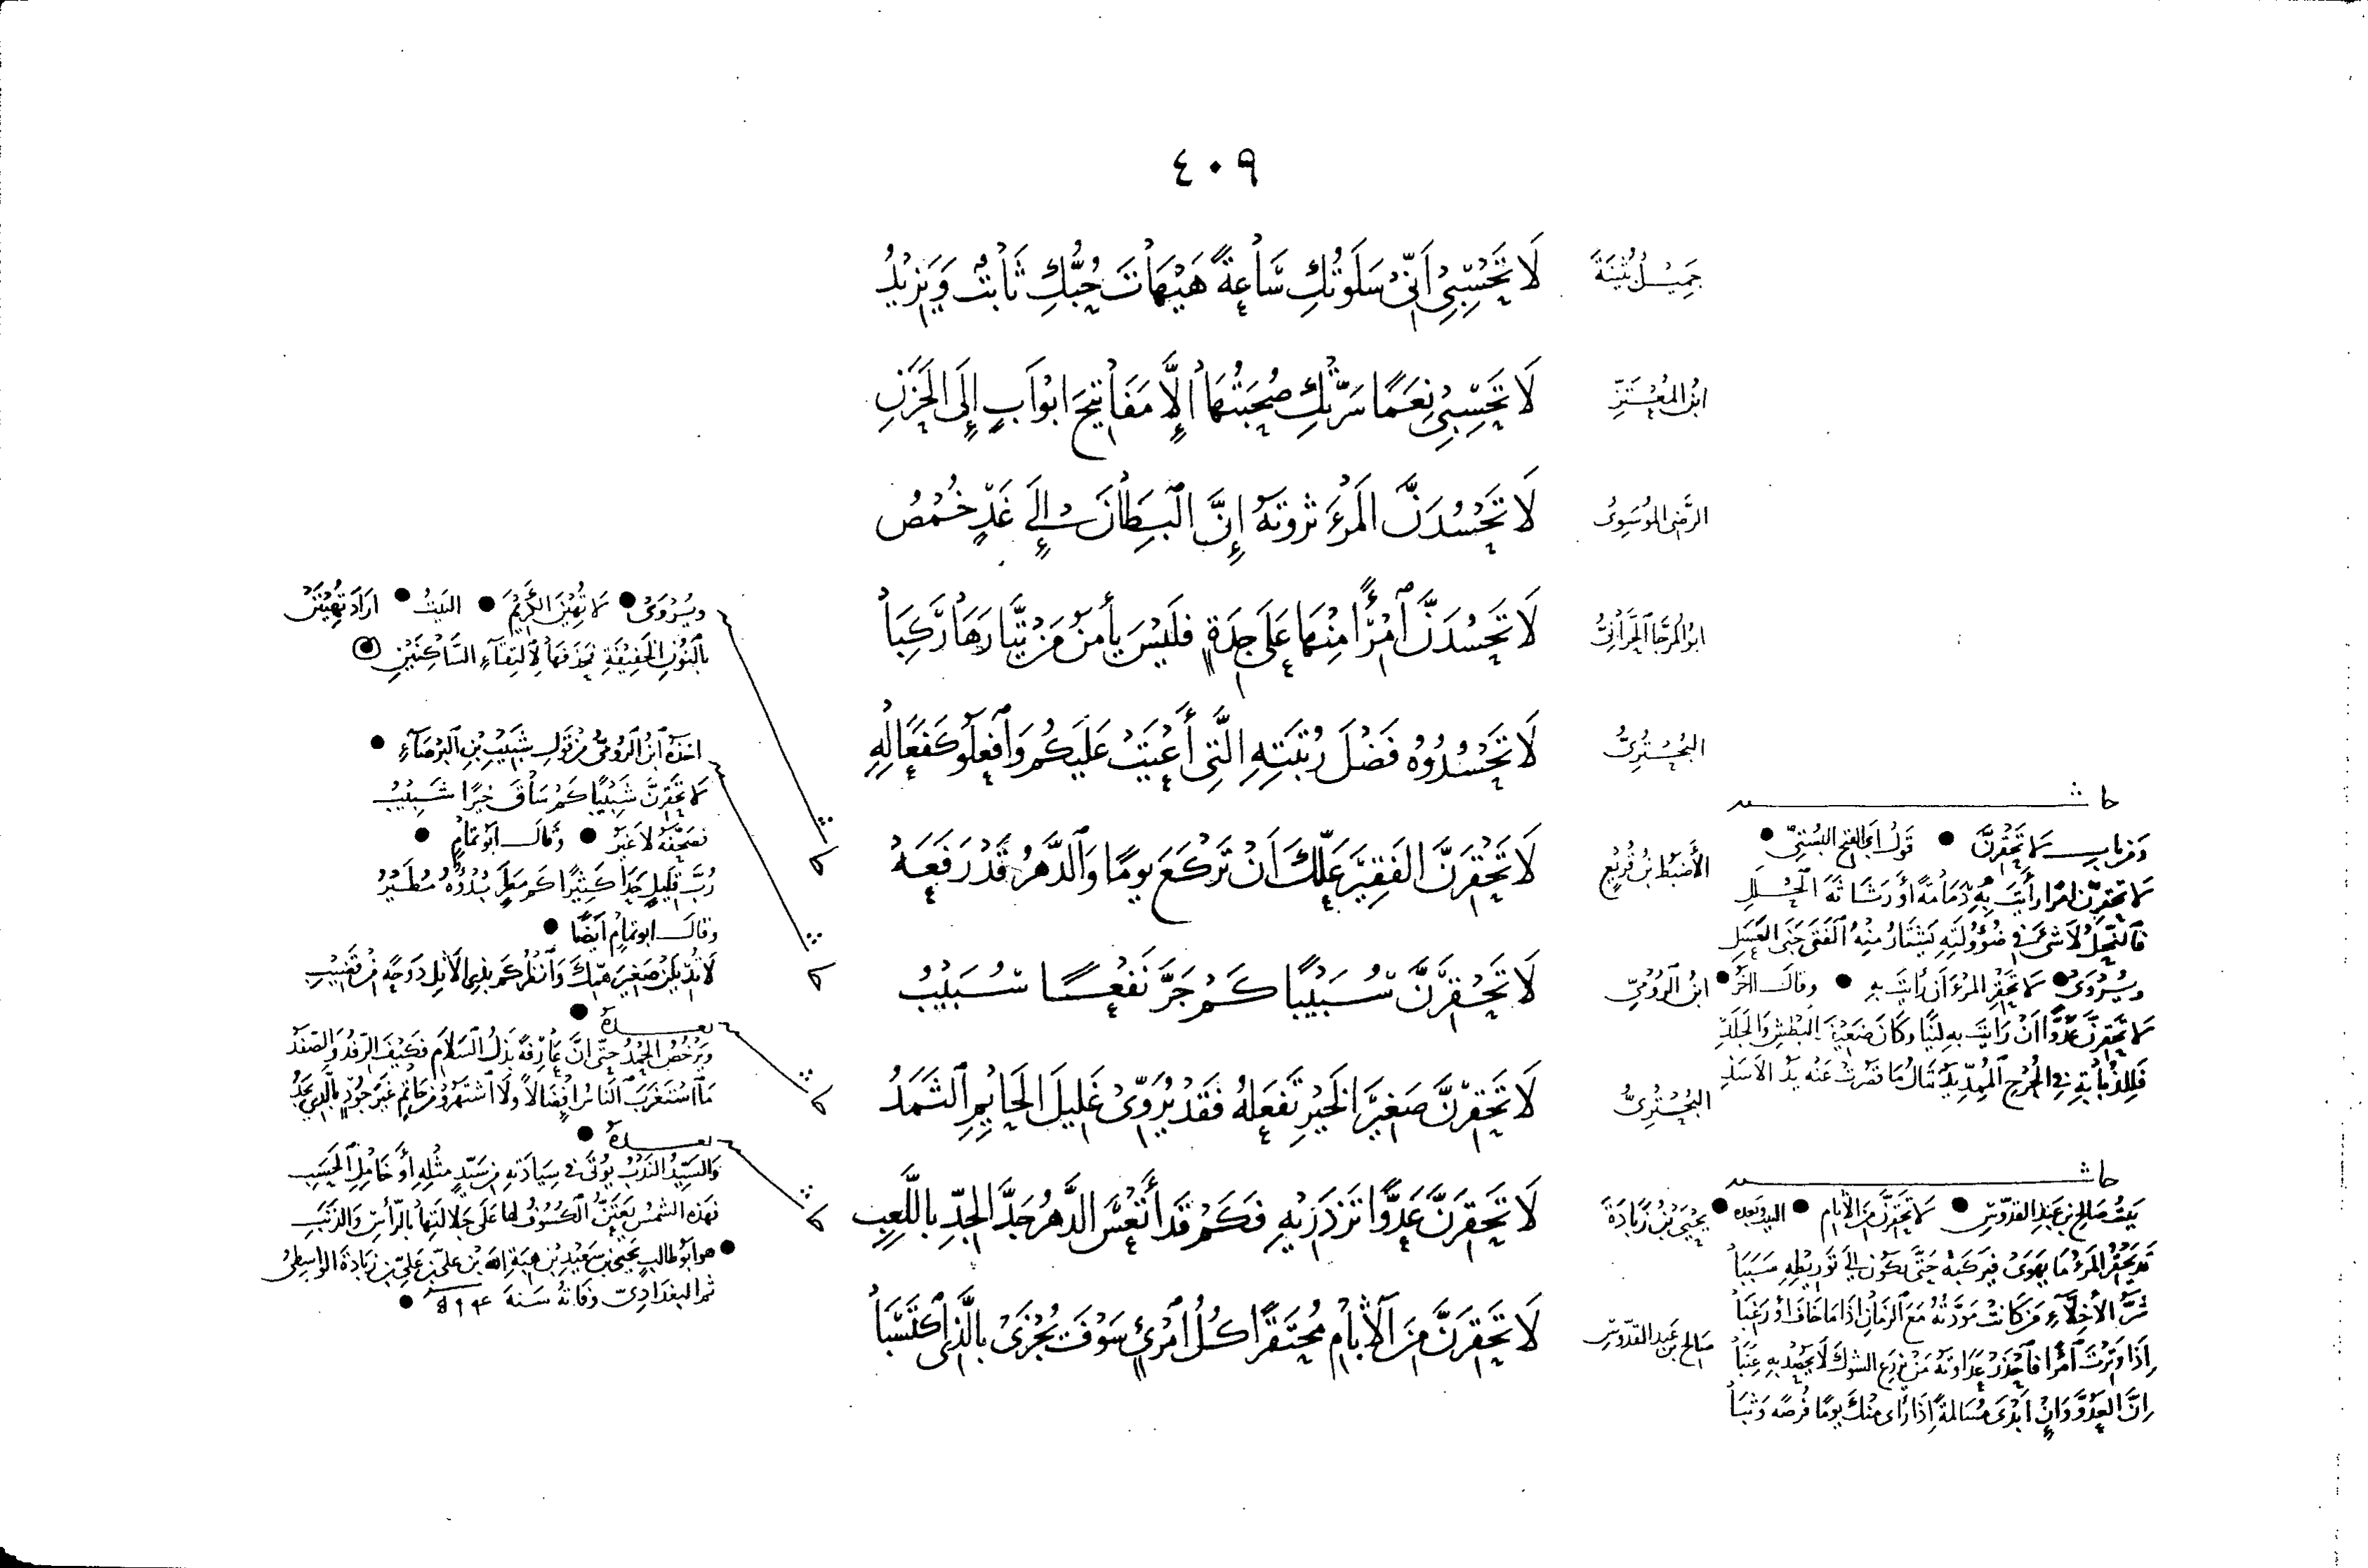 ٤٠٩
جَمِيْلُ بُثَيْنَةَ
لَا تَحْسَبِيْ اَنِّيْ سَلَوْتُكِ سَاْعَةً هَيْهَاْتَ حُبُّكِ ثَاْبِتٌ وَيَزِيْدُ
ابْنُ المُعْتَزِّ
لَا تَحْسَبِيْ نِعَمًا سَرَّتْكِ صُحْبَتُهَاْ اِلَّا مَفَاْتِيْحَ ابْوَاْبٍ إِلَى الْحَزَنِ
الرَّضِى المُوْسَوِىُّ
لَا تَحْسُدَنَّ المَرْءَ ثَروَتَهُ إِنَّ الْبِطَاْنَ إِلَى غَدٍ خُمْصُ
ابُو المُرَجَّا الْحَرَّانِىُّ
لَا تَحْسُدَنَّ اُمْرًا مِنْهَا عَلَى جِدَةٍ فَلَيْسَ يَأْمَنُ مَنْ تَيَّارَهَاْ رَكِبَاْ
البُحْتُرِىُّ
لَا تَحْسُدُوْهُ فَضْلَ رُتْبَتِهِ الَّتِى أَعْيَتْ عَلَيْكُمْ وَاْفْعَلُوْ كَفَعَالِهِ
الأَضْبَطُ بْنُ قُرَيْعٍ
لَا تَحْقُرَنَّ الفَقِيْرَ عَلَّكَ اَنْ تَرْكَعَ يومًا وَالدَّهرُ قَدْ رَفَعَهُ
ابْنُ الرُّوْمِيِّ
لَا تَحْقِرَنَّ سُبَيْبًا كَمْ جَرَّ نَفْعًا سُبَيْبُ
البُحْتُرِىُّ
لَا تَحْقِرَنَّ صَغِيْرَ الْخَيْرِ تَفْعَلُهُ فَقَدْ يُرَوِّىْ غَلِيْلَ الْحَائِمِ الثَّمَدُ
يَحْيَىَ بْنُ زَبَادَةَ
لَا تَحْقِرَنَّ عَدِوًّا تَزْدَرِيْهِ فَكَمْ قَدْ أَتْعَسَ الدَّهْرُ جَدَّ الْجِدِّ بِاللَّعِبِ
صَالِحُ بن عَبدِ القُدُّوسِ
لَا تَحْقِرَنَّ مِنَ الْاَثَامِ مُحْتَقَرًا كُلُّ اْمْرِئٍ سَوْفَ يُجْزَىْ بِالَّذِى اْكْتَسَبَاْ
ويُرْوَىْ لَا تُهِيْنَ الكَرِيْمَ البَيْتُ ارَادَ تُهِيْنَنْ
بالنُّوْنِ الْخَفِيْفَةِ فَحَذَفَهَا لِالتِقَآءِ السَّاكِنَيْنِ
اخَذَهُ ابْنُ الرُّوْمِىِّ مِنْ قَوْلِ شَبِيْبِ بْنِ الْبَرْصَآءِ
لَا تَحْقِرَنَّ شَبِيْبًا كَمْ سَاْقَ خَيْرًا شَبِيْبُ
فَصَحَّفَهُ لَا غَيْرُ وَقَالَ ابُو تَمَّامٍ
رُبَّ قَلِيْلٍ جَدَاْ كَثِيْرًا كَمْ مَطَرٍ بُدْؤُهُ مُطَيْرُ
وَقَالَ ابوتَمَّامٍ أَيْضًا
لَا تُذِيْلَنْ صَغِيْرَ هَمِّكَ وَانْظُرْ كَمْ بِذِى الأَثْلِ دَوْحَةٍ مِنْ قَضِيْبِ
بَعْدَهُ
وَيَرْخُصُ الْحَمْدُ حَتَّى اِنَّ عَارِفَةً بَذْلُ السَّلَامِ فَكَيْفَ الرِّفْدُ وَالصَّفَدُ
مَا اسْتَغْرَبَ النَّاسُ اِفْضَالًا وَلَا اشْتَهَرُوْ مِنْ حَاتِمٍ غَيْرَ جُوْدٍ بِالَّذِى يَجِدُ
بَعْدَهُ
وَالسَّيِّدُ النَّدْبُ يُؤْتَى فِى سِيَادَتِهِ مِنْ سَيِّدٍ مِثْلِهِ أَوْ خَامِلِ الْحَسَبِ
فَهَذِهِ الشَّمْسُ يَعْتَنُّ الْكُسُوْفُ لَهَا عَلَى جَلَالَتِهَا بِالرَّأْسِ وَالذَّنَبِ
هُوَ ابُو طالبٍ يَحْيَى بن سَعِيْدِ بْنِ هِبَةِ اللهِ بْنِ عَلِىِّ بن عَلِىِّ بن زَبَادَةَ الوَاسِطِىُّ
ثم البَغْدَادِىُّ وَفَاتُهُ سَنةَ ٥٩٤
حاشيه
وَمِنْ بابِ لَا تَحْقِرَنَّ قَوْلُ ابِى الفتحِ البُسْتِىِّ
لَا تَحْقِرَنَّ امْرًا رَأَيْتَ بِهِ دَمَامَةً أَوْ رَثَاثَةَ الْحُلَلِ
فَالنَّحْلُ لَا شَىْءَ فِى ضُؤُوْلَتِهِ يَشْتَارُ مِنْهُ الْفَتَى جَنَى العَسَلِ
ويُرْوَىْ لَا تَحْقِرِ المَرْءَ اَنْ رَأَيْتَ بِهِ وقالَ آخَرُ
لَا تَحْقِرَنَّ عَدُوًّا اَنْ رَاَيْتَ بِهِ لِيْنًا وَكَانَ ضَعِيْفَ البَطْشِ وَالجَلَدِ
فَلِلذُّبَابَةِ فِى الْجُرْحِ الْمُمِدِّ يَدٌ تَنَالُ مَا قَصُرَتْ عَنْهُ يَدُ الأَسَدِ
حاشيه
بَيْتُ صَالحِ بن عَبْدِ القدُّوْسِ لَا تَحْقِرَنَّ مِنَ الأثَامِ البيت وبَعده
قَدْ يَحْقُرُ المَرْءُ مَا يَهْوَىْ فَيَرْكَبُهُ حَتَّى يَكُوْنَ اِلَى تَوْرِيْطِهِ سَبَبَاْ
شَرُّ الأَخِلَّآءِ مَنْ كَانَتْ مَوَدَّتُهُ مَعَ الزَّمَانِ اِذَا مَا خَافَ أَوْ رَغِبَاْ
اِذَا وَتَرْتَ اْمْرًا فَاْحْذَرْ عَدَاوَتَهُ مَنْ يَزْرَعِ الشَّوْكَ لَا يَحْصُدْ بِهِ عِنَبَاْ
اِنَّ العَدُوَّ وَاِنْ اَبْدَى مُسَالَمةً اِذَا رَاَى مِنْكَ يَوْمًا فُرْصَةً وَثَبَاْ